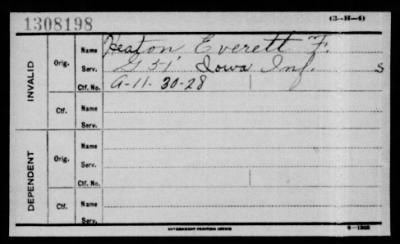 1308198 (3-H-4)
INVALID
Orig.
Name Heaton Everett F.
Serv. G 51 Iowa Inf. S
Ctf. No. A-11-30-28
Ctf.
Name
Serv.
DEPENDENT
Orig.
Name
Serv.
Ctf. No.
Ctf.
Name
Serv.
GOVERNMENT PRINTING OFFICE